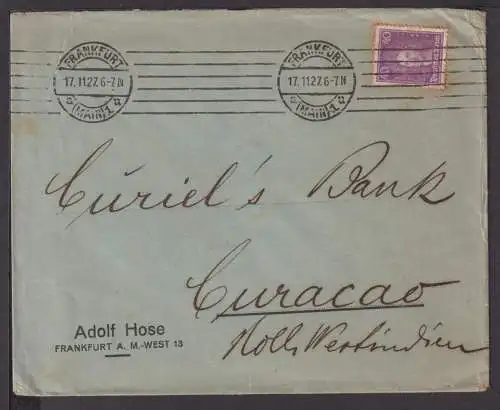 FRANKFURT
17.11.27. 6-7 N
* (MAIN) 1 *
FRANKFURT
17.11.27. 6-7 N
* (MAIN) 1 *
Cúriel's Bank
Curacao
Holl. Westindien
Adolf Hose
FRANKFURT A. M.-WEST 13